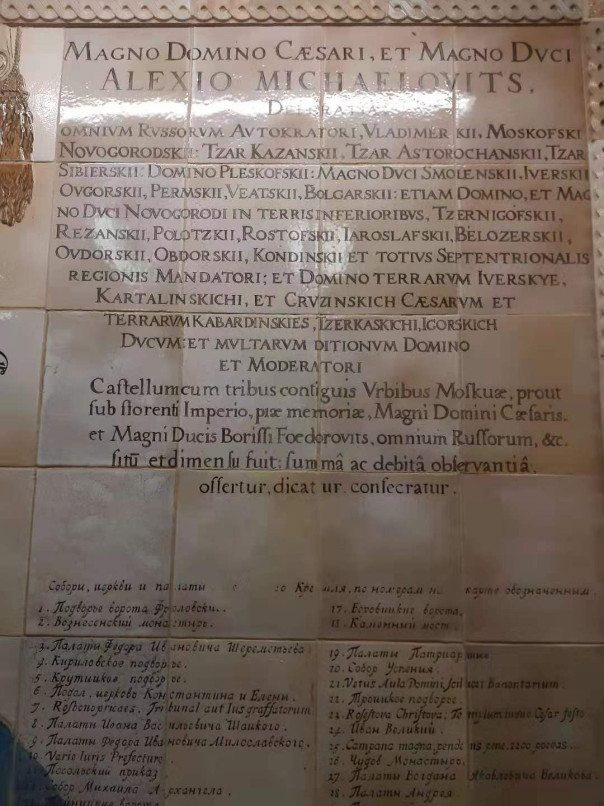 MAGNO DOMINO CÆSARI, ET MAGNO DVCI
ALEXIO MICHAELOVITS,
OMNIVM RVSSORVM AVTOKRATORI, VLADIMERKII, MOSKOFSKI
NOVOGORODSKII: TZAR KAZANSKII, TZAR ASTOROCHANSKII, TZAR
SIBIERSKII: DOMINO PLESKOFSKII: MAGNO DVCI SMOLENSKII, IVERSKII
OVGORSKII, PERMSKII, VEATSKII, BOLGARSKII: ETIAM DOMINO, ET MAG
NO DVCI NOVOGORODI IN TERRIS INFERIORIBVS, TZERNIGOFSKII,
REZANSKII, POLOTZKII, ROSTOFSKII, IAROSLAFSKII, BELOZERSKII,
OVDORSKII, OBDORSKII, KONDINSKII ET TOTIVS SEPTENTRIONALIS
REGIONIS MANDATORI; ET DOMINO TERRARVM IVERSKYE,
KARTALINSKICHI, ET GRVZINSKICH CÆSARVM ET
TERRARVM KABARDINSKIES, TZERKASKICHI, IGORSKICH
DVCVM: ET MVLTARVM DITIONVM DOMINO
ET MODERATORI
Castellum cum tribus contiguis Vrbibus Moskuæ, prout
sub florenti Imperio, piæ memoriæ, Magni Domini Cæsaris.
et Magni Ducis Borissi Foedorovits, omnium Russorum, &c.
sitū et dimensu fuit: summâ ac debitâ observantiâ.
offertur, dicatur. consecratur.
Соборы, церкви и палаты Кремля, по номерам на карте обозначенным.
1. Подворье ворота
2. Вознесенский монастырь.
3. Палаты Федора Ивановича Шереметьева.
4. Кириловское подворье.
5. Крутицкое подворье.
6. Подол, церковь Константина и Елены.
7. Tribunal aut Ius graffatorum
8. Палаты Ивана Васильевича Шацкого.
9. Палаты Федора Ивановича Милославского.
10. Varie Iuris Prefecture.
11. Посольский приказ.
Собор Михаила Архангела.
17. ворота,
18. Каменный мост.
19. Палаты Патриарши
20. Собор Успения.
21. Vetus Aula Domini,
Троицкое подворье.
Иван Великий.
25. Campana magna,
26. Чудов Монастырь.
27. Палаты Богдана Яковлевича Великова.
28. Палаты Андрея